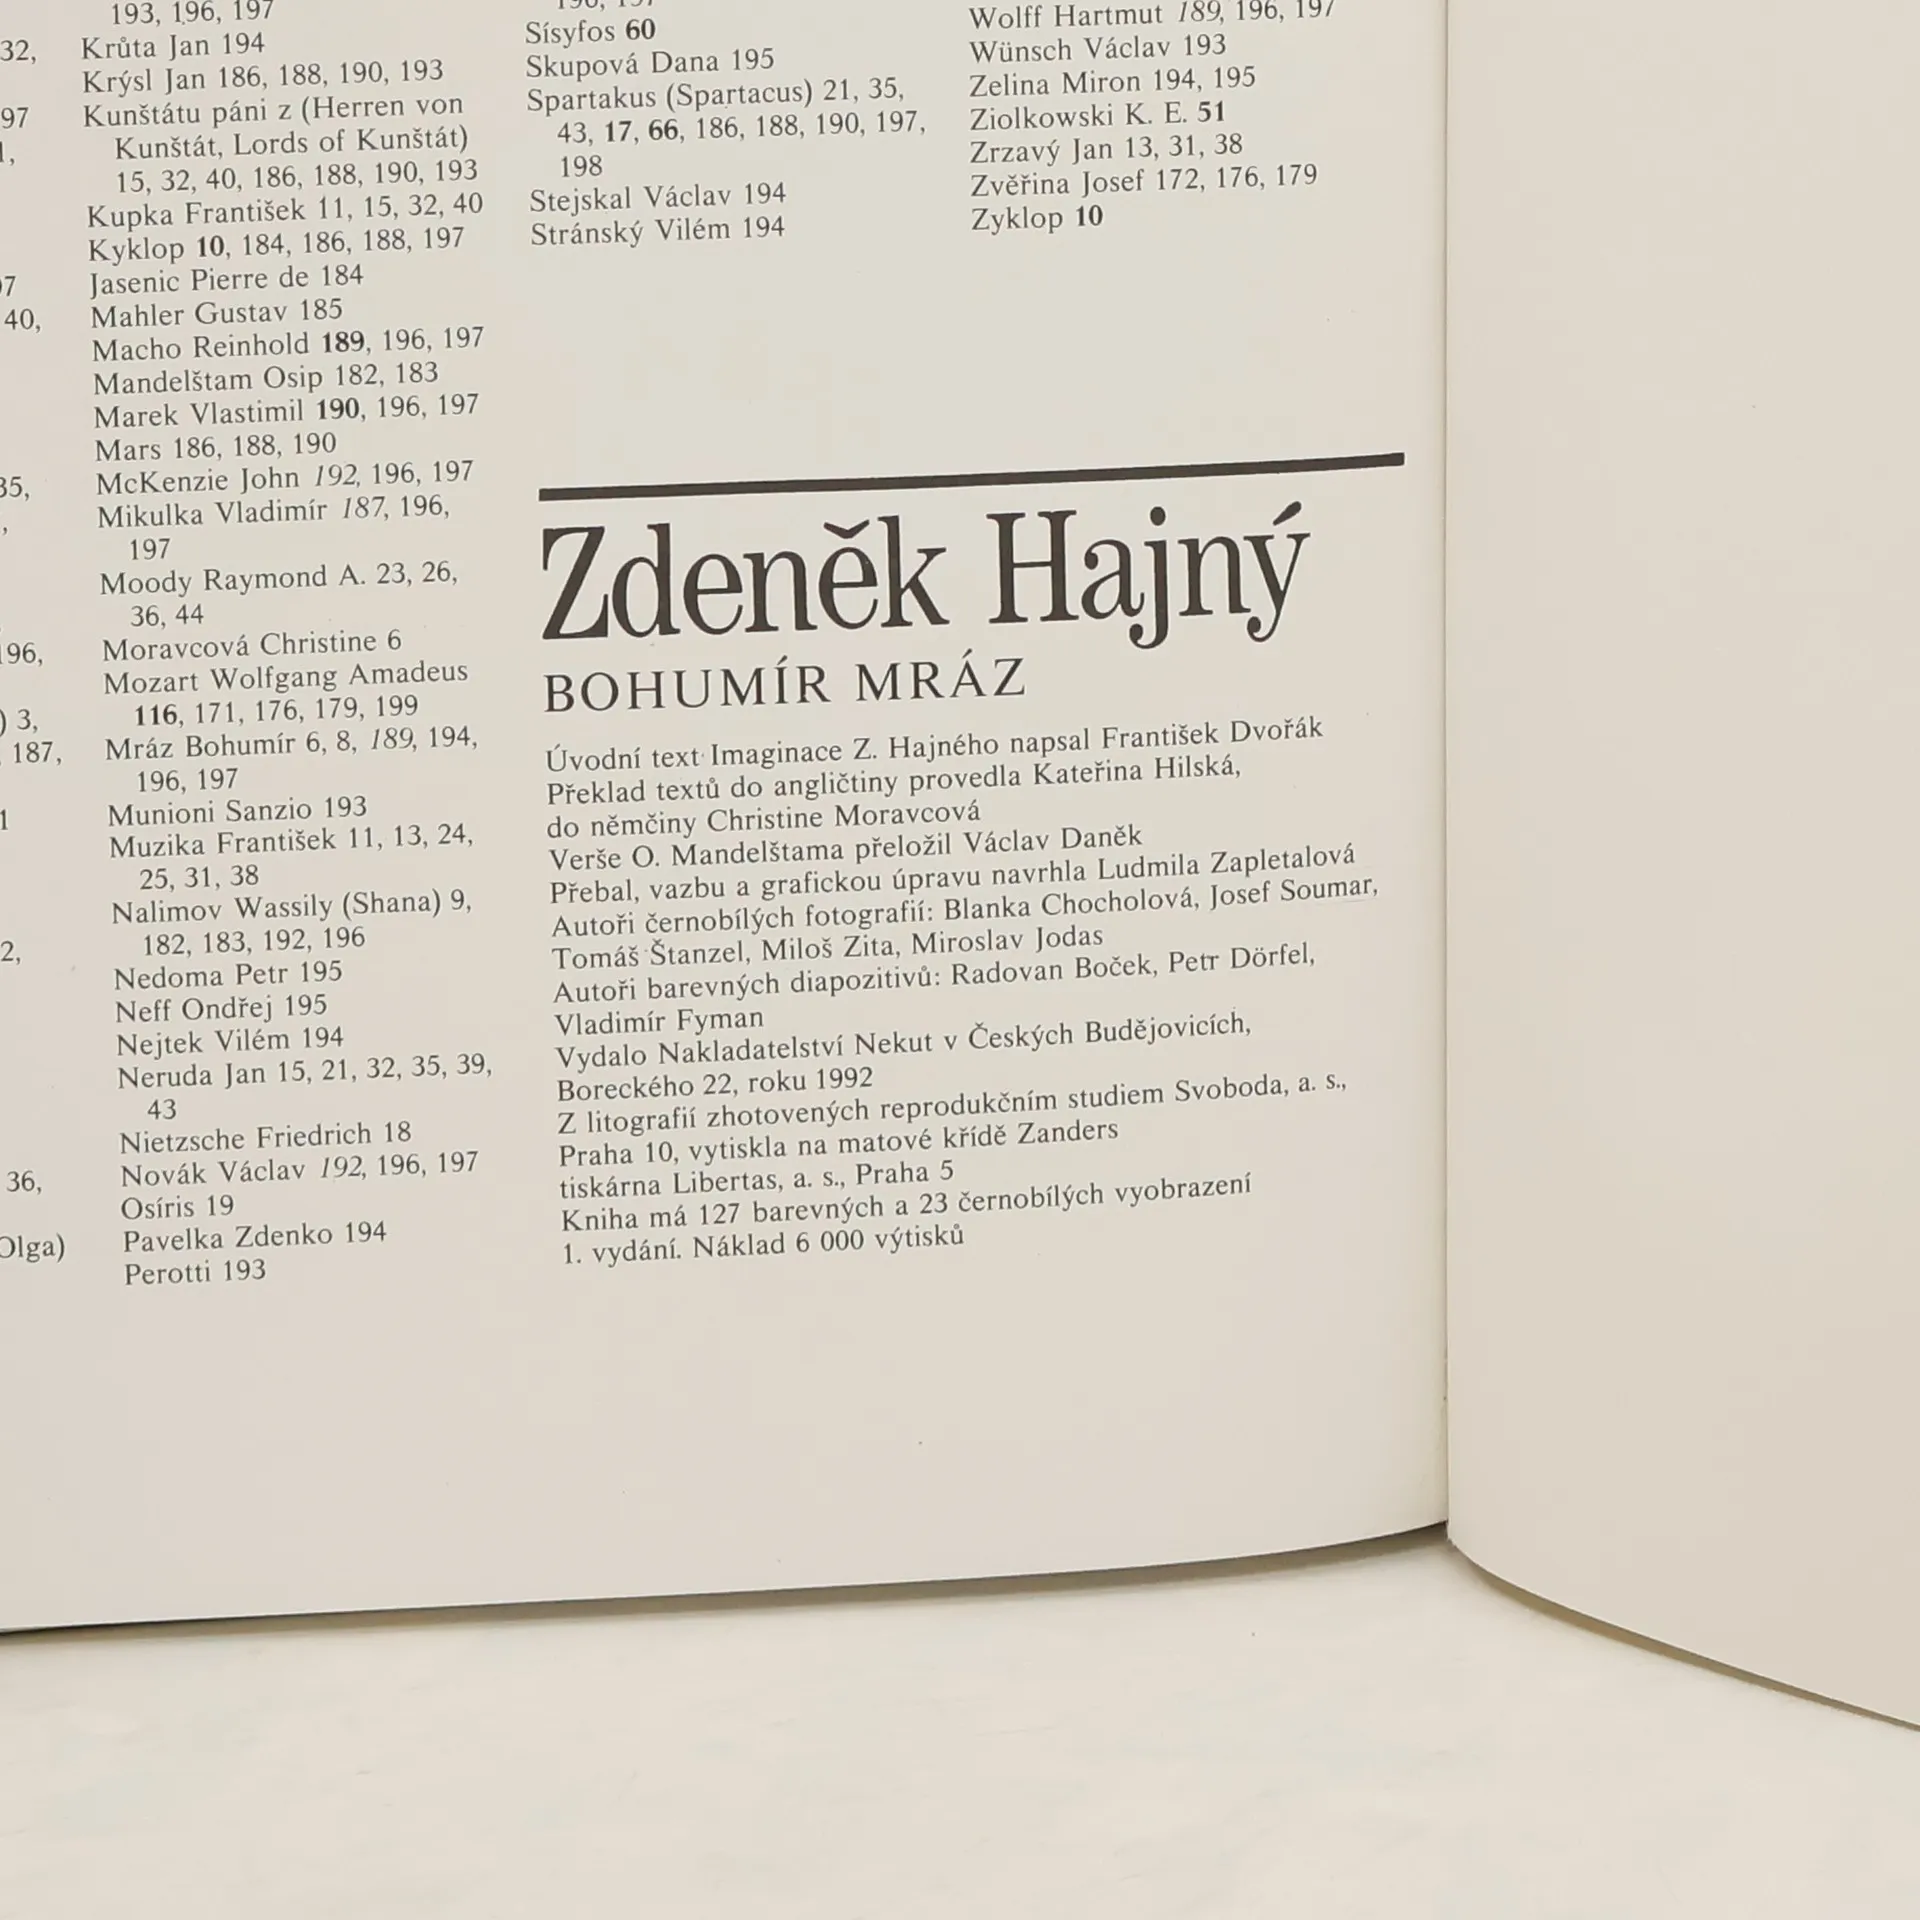 32,
97
1,
97
40,
35,
,
196,
) 3,
187,
1
2,
36,
Olga)
193, 196, 197
Krůta Jan 194
Krýsl Jan 186, 188, 190, 193
Kunštátu páni z (Herren von
Kunštát, Lords of Kunštát)
15, 32, 40, 186, 188, 190, 193
Kupka František 11, 15, 32, 40
Kyklop 10, 184, 186, 188, 197
Jasenic Pierre de 184
Mahler Gustav 185
Macho Reinhold 189, 196, 197
Mandelštam Osip 182, 183
Marek Vlastimil 190, 196, 197
Mars 186, 188, 190
McKenzie John 192, 196, 197
Mikulka Vladimír 187, 196,
197
Moody Raymond A. 23, 26,
36, 44
Moravcová Christine 6
Mozart Wolfgang Amadeus
116, 171, 176, 179, 199
Mráz Bohumír 6, 8, 189, 194,
196, 197
Munioni Sanzio 193
Muzika František 11, 13, 24,
25, 31, 38
Nalimov Wassily (Shana) 9,
182, 183, 192, 196
Nedoma Petr 195
Neff Ondřej 195
Nejtek Vilém 194
Neruda Jan 15, 21, 32, 35, 39,
43
Nietzsche Friedrich 18
Novák Václav 192, 196, 197
Osíris 19
Pavelka Zdenko 194
Perotti 193
196, 197
Sísyfos 60
Skupová Dana 195
Spartakus (Spartacus) 21, 35,
43, 17, 66, 186, 188, 190, 197,
198
Stejskal Václav 194
Stránský Vilém 194
Wolff Hartmut 189, 196, 197
Wünsch Václav 193
Zelina Miron 194, 195
Ziolkowski K. E. 51
Zrzavý Jan 13, 31, 38
Zvěřina Josef 172, 176, 179
Zyklop 10
Zdeněk Hajný
BOHUMÍR MRÁZ
Úvodní text Imaginace Z. Hajného napsal František Dvořák
Překlad textů do angličtiny provedla Kateřina Hilská,
do němčiny Christine Moravcová
Verše O. Mandelštama přeložil Václav Daněk
Přebal, vazbu a grafickou úpravu navrhla Ludmila Zapletalová
Autoři černobílých fotografií: Blanka Chocholová, Josef Soumar,
Tomáš Štanzel, Miloš Zita, Miroslav Jodas
Autoři barevných diapozitivů: Radovan Boček, Petr Dörfel,
Vladimír Fyman
Vydalo Nakladatelství Nekut v Českých Budějovicích,
Boreckého 22, roku 1992
Z litografií zhotovených reprodukčním studiem Svoboda, a. s.,
Praha 10, vytiskla na matové křídě Zanders
tiskárna Libertas, a. s., Praha 5
Kniha má 127 barevných a 23 černobílých vyobrazení
1. vydání. Náklad 6 000 výtisků